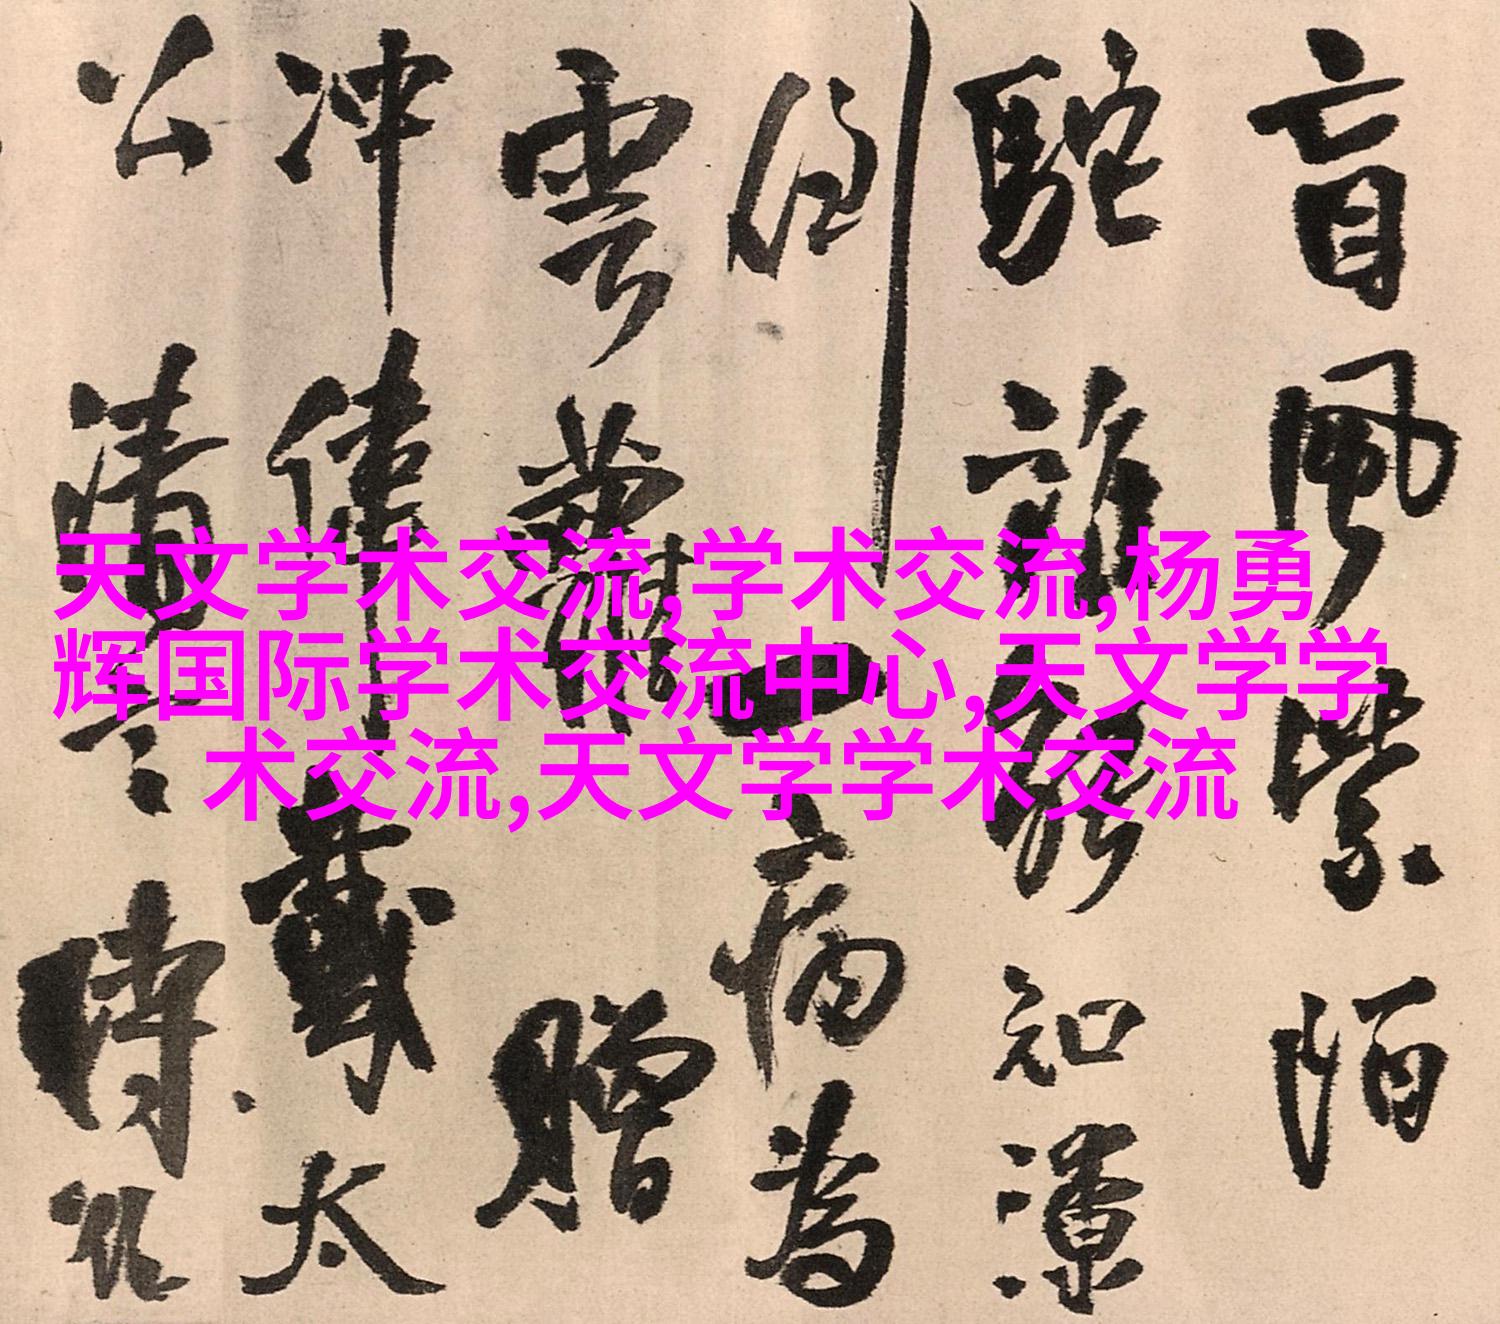 盲風紫陌
駝誰
知源
側一病為
雲
贈
冲偉戴太
公清言時
天文学术交流,学术交流,杨勇
辉国际学术交流中心,天文学学
术交流,天文学学术交流